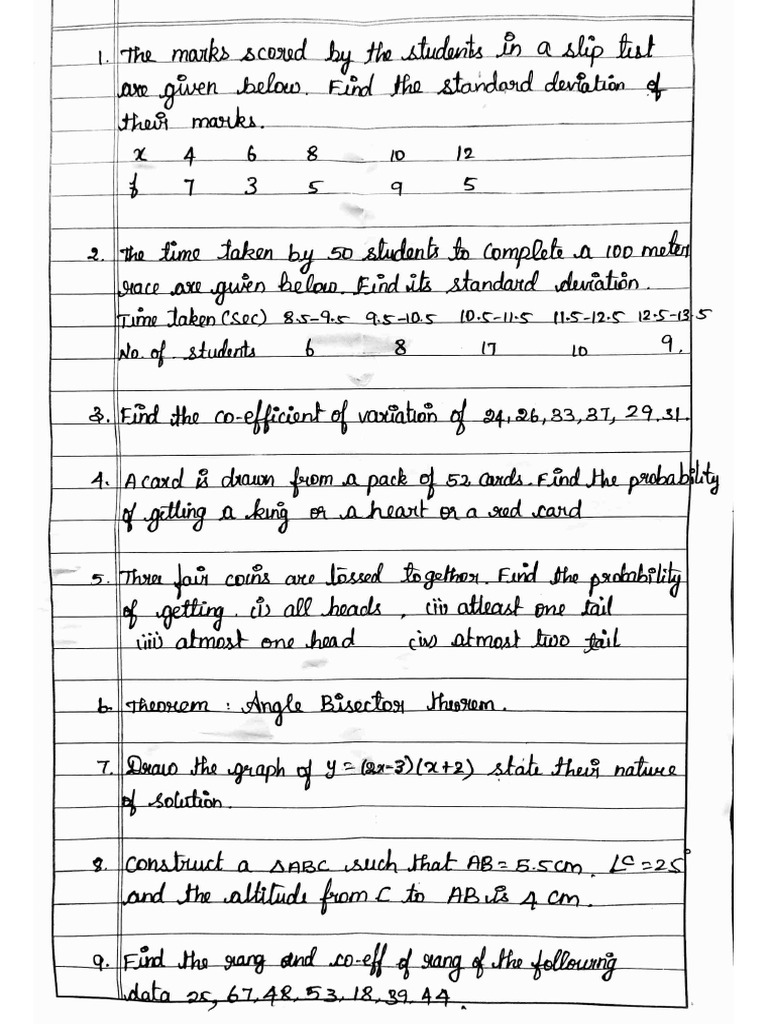 1. The marks scored by the students in a slip test
are given below. Find the standard deviation of
their marks.
x 4 6 8 10 12
f 7 3 5 9 5
2. The time taken by 50 students to complete a 100 meter
race are given below. Find its standard deviation.
Time taken (sec) 8.5-9.5 9.5-10.5 10.5-11.5 11.5-12.5 12.5-13.5
No. of students 6 8 17 10 9.
3. Find the co-efficient of variation of 24, 26, 33, 37, 29, 31.
4. A card is drawn from a pack of 52 cards. Find the probability
of getting a king or a heart or a red card
5. Three fair coins are tossed together. Find the probability
of getting. (i) all heads, (ii) atleast one tail
(iii) atmost one head (iv) atmost two tail
6. Theorem : Angle Bisector theorem.
7. Draw the graph of y = (2x-3)(x+2) state their nature
of solution.
8. construct a △ABC such that AB = 5.5cm. ∟C = 25°
and the altitude from C to AB is 4 cm.
9. Find the rang and co-eff of rang of the following
data 25, 67, 48, 53, 18, 39, 44.